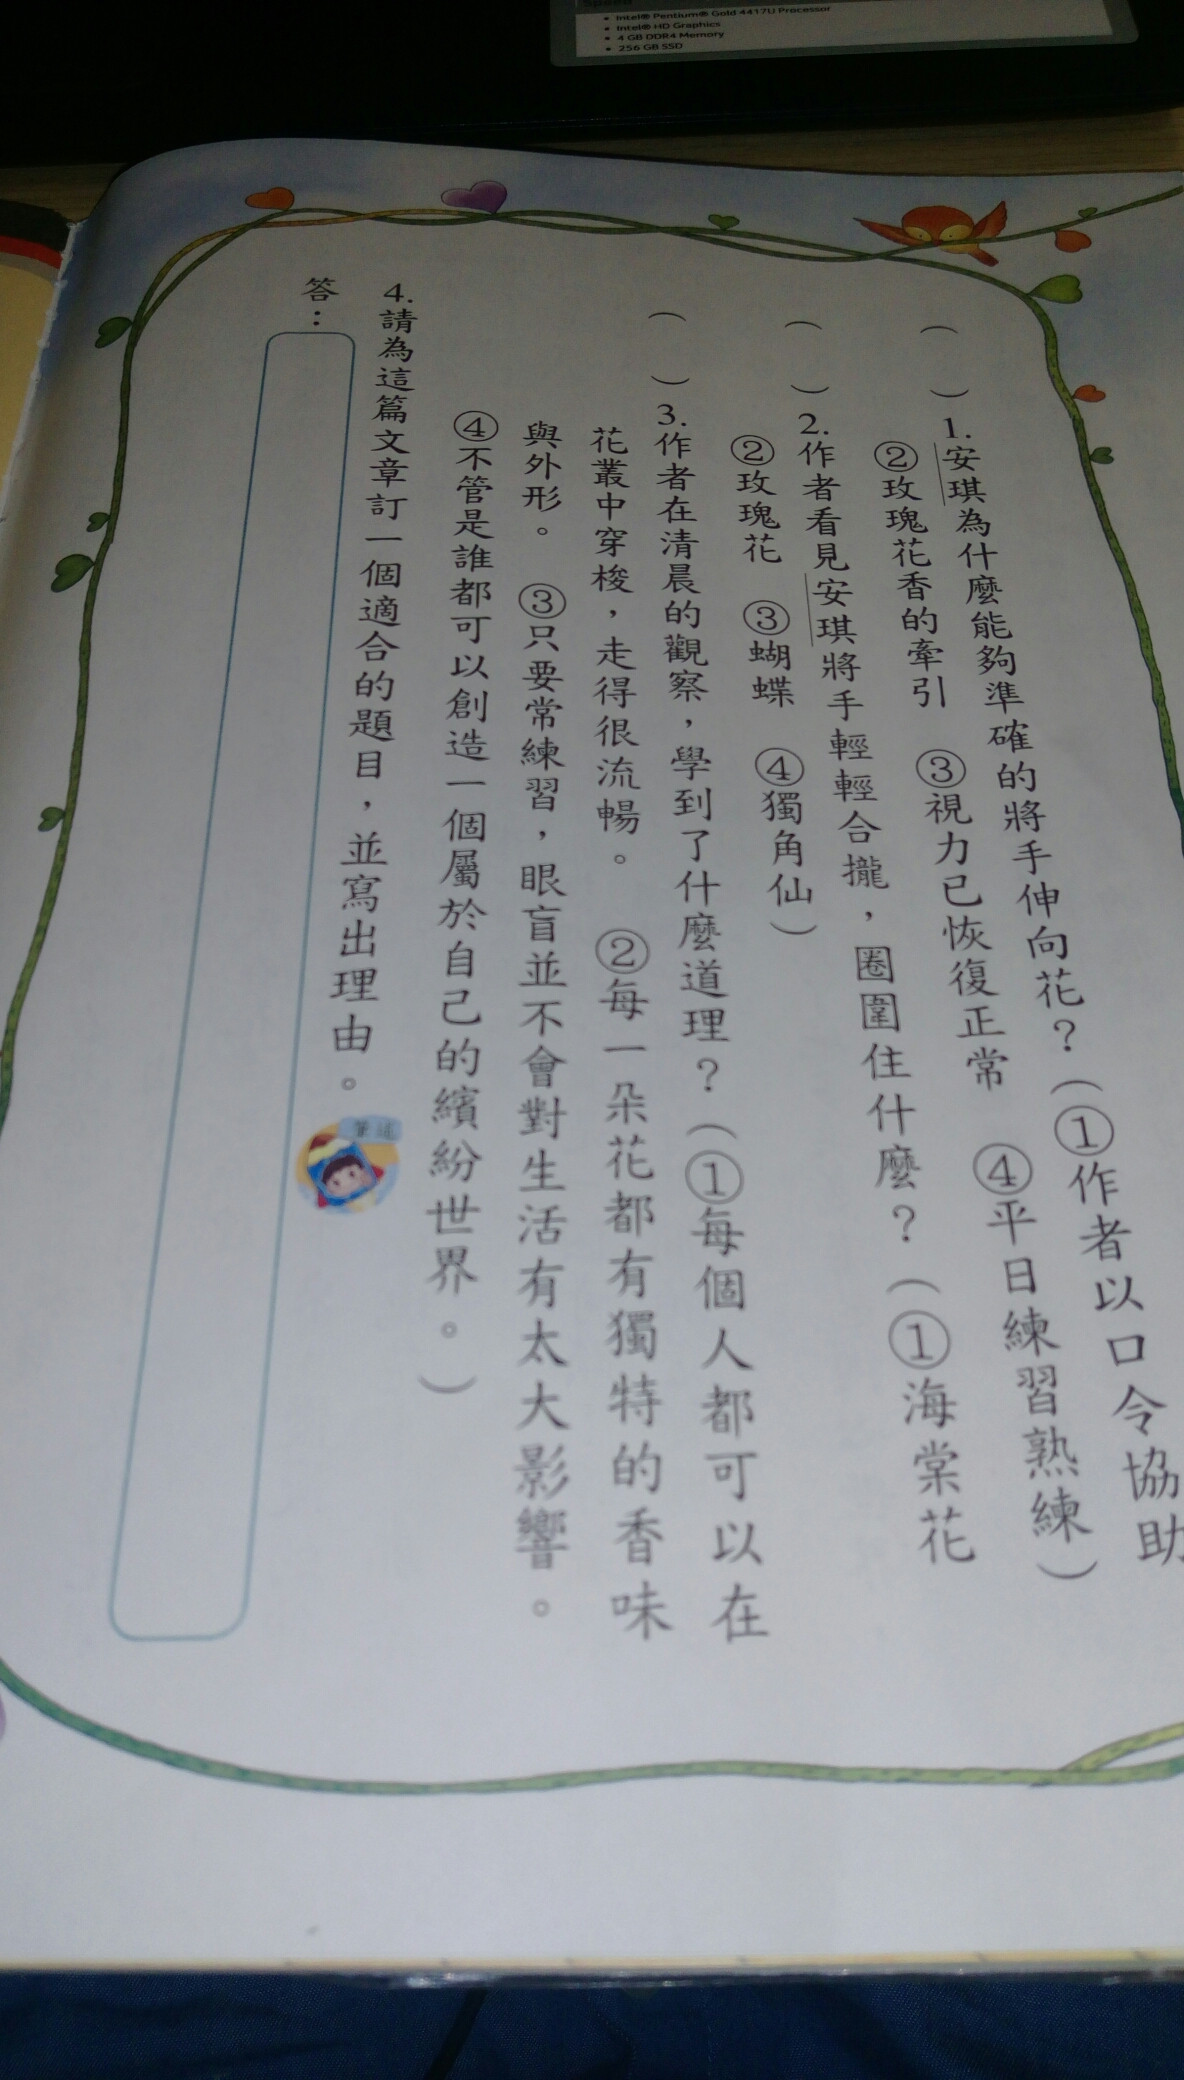 Speed
• Intel® Pentium® Gold 4417U Processor
• Intel® HD Graphics
• 4 GB DDR4 Memory
• 256 GB SSD
（　）1.安琪為什麼能夠準確的將手伸向花？（①作者以口令協助
②玫瑰花香的牽引　③視力已恢復正常　④平日練習熟練）
（　）2.作者看見安琪將手輕輕合攏，圈圍住什麼？（①海棠花
②玫瑰花　③蝴蝶　④獨角仙）
（　）3.作者在清晨的觀察，學到了什麼道理？（①每個人都可以在
花叢中穿梭，走得很流暢。　②每一朵花都有獨特的香味
與外形。　③只要常練習，眼盲並不會對生活有太大影響。
④不管是誰都可以創造一個屬於自己的繽紛世界。）
4.請為這篇文章訂一個適合的題目，並寫出理由。
筆述
答：